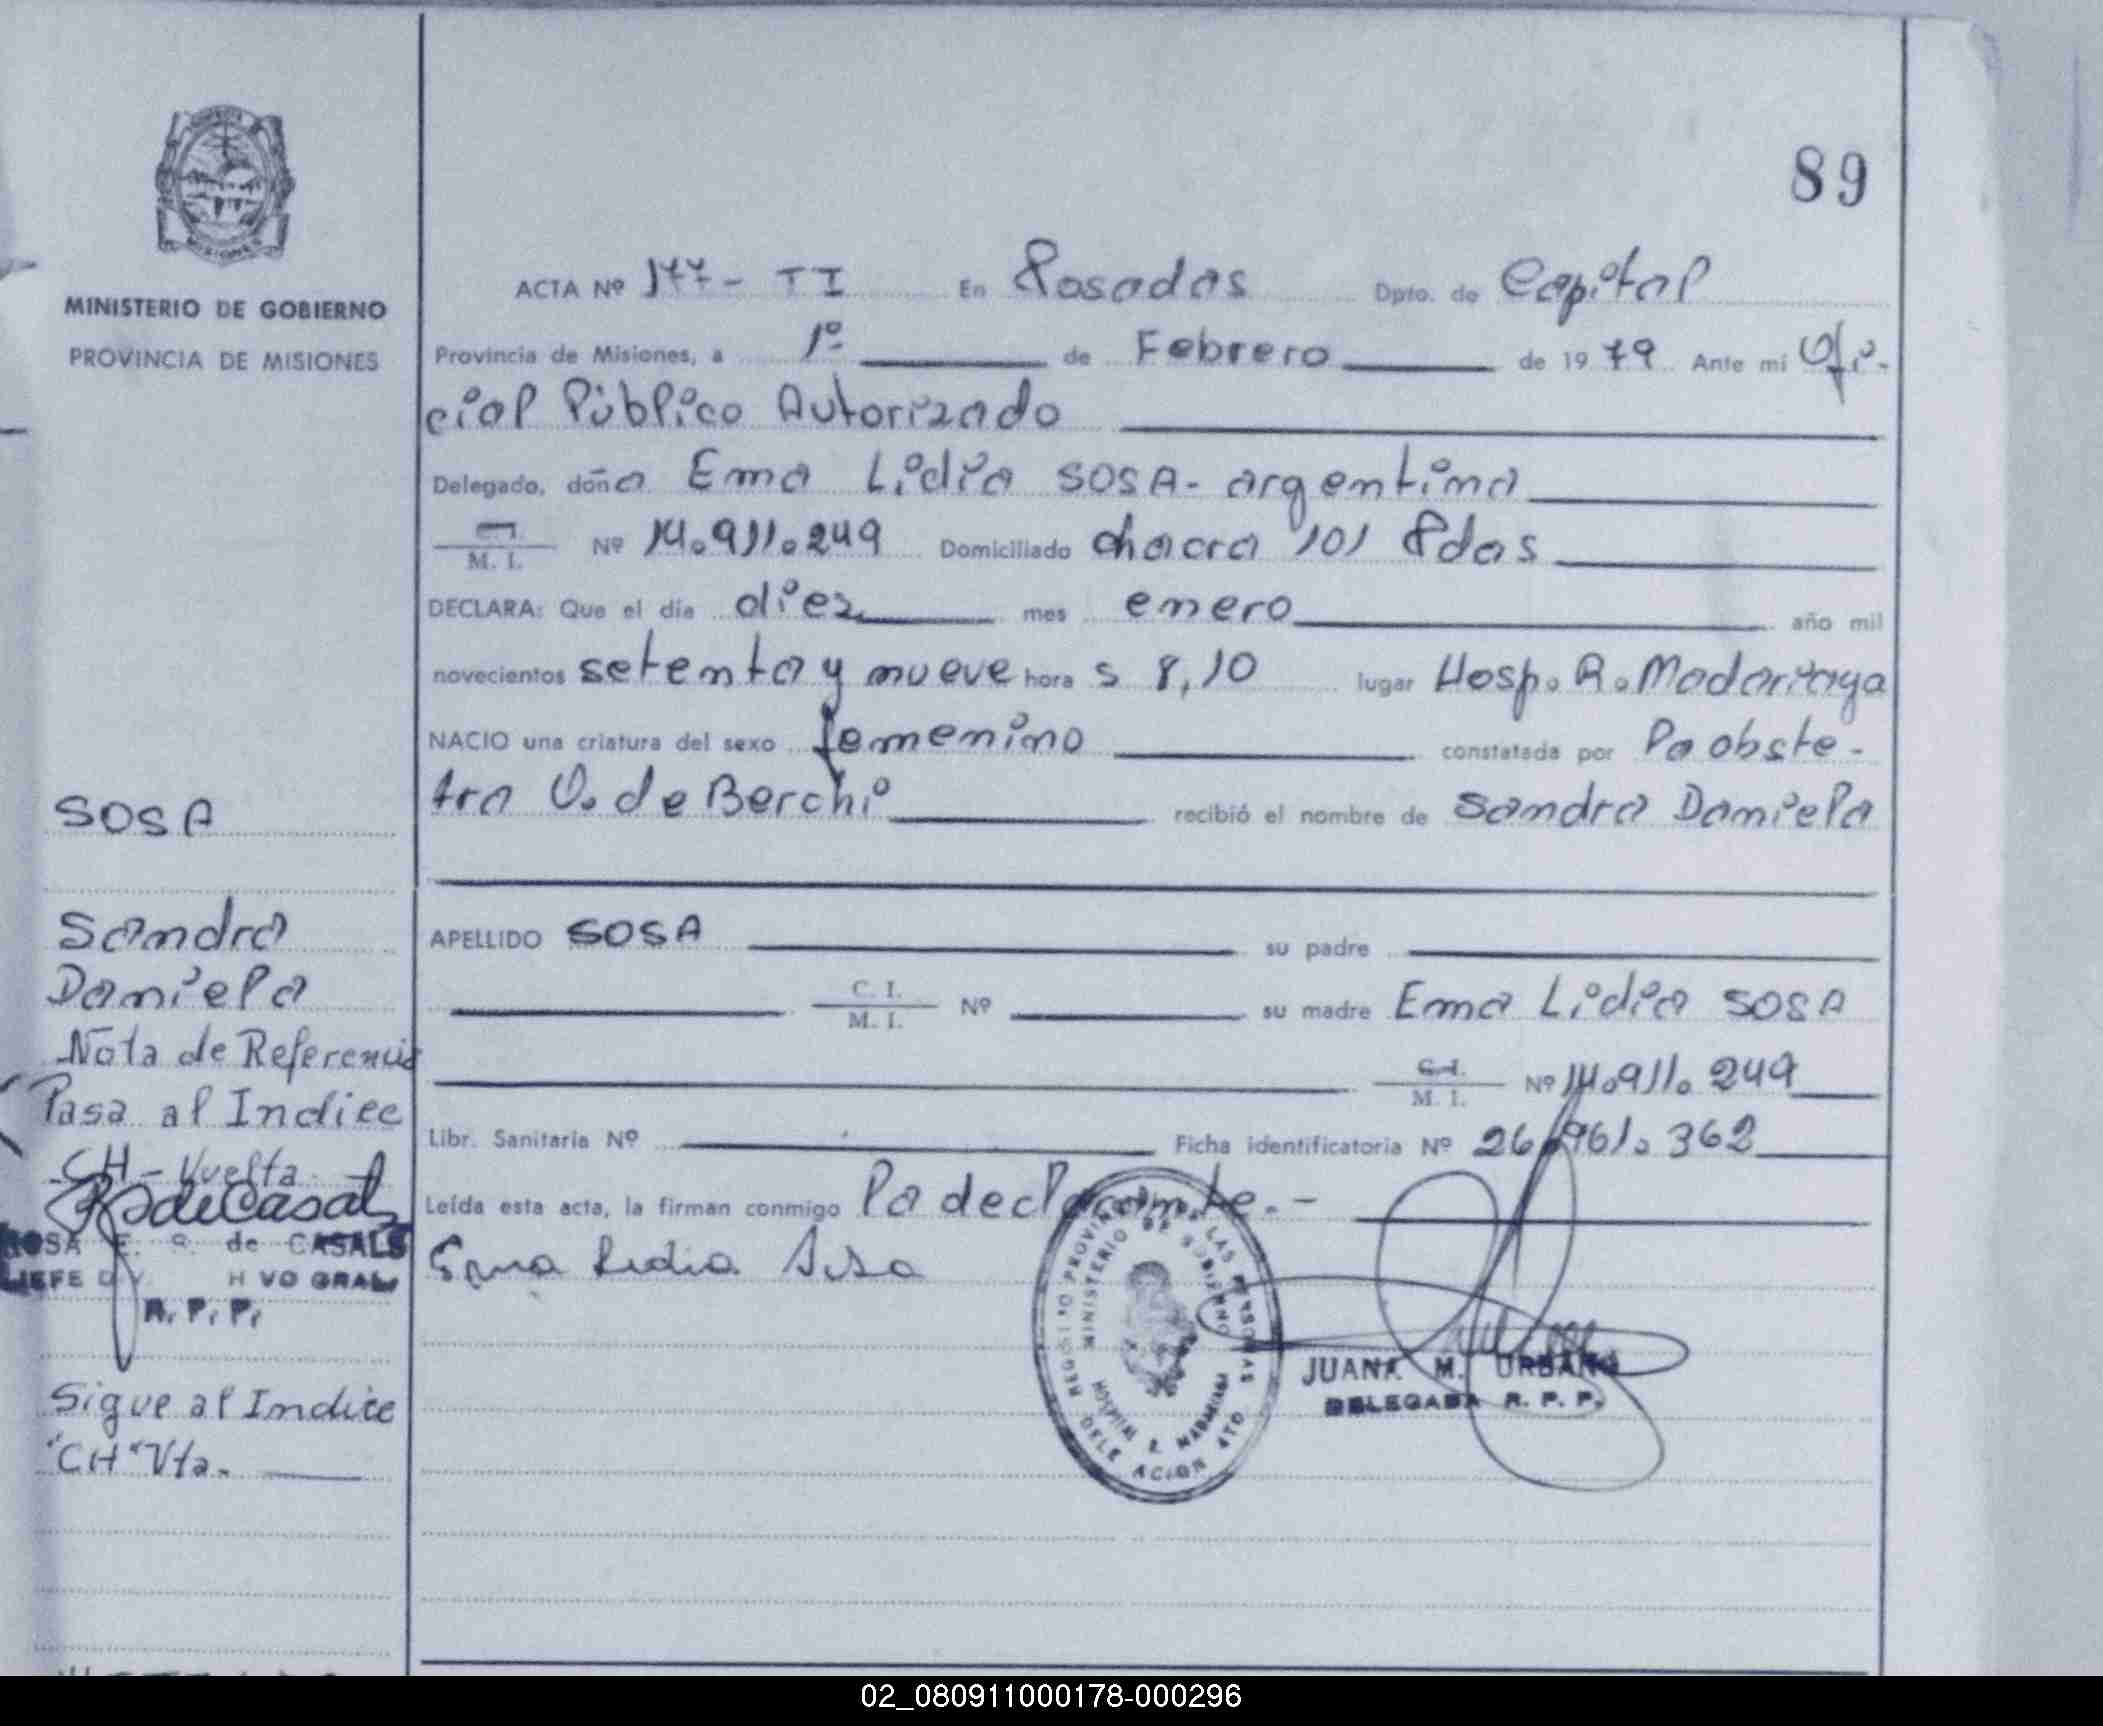 89
MINISTERIO DE GOBIERNO
PROVINCIA DE MISIONES
ACTA Nº 177 - TI En Posadas Dpto. de Capital
Provincia de Misiones, a 1º de Febrero de 1979 Ante mi Ofi-
cial Público Autorizado
Delegado, doña Ema Lidia SOSA - argentina
M. I. Nº 14.911.249 Domiciliado chacra 101 Pdas
DECLARA: Que el día diez mes enero año mil
novecientos setenta y nueve hora s 8,10 lugar Hosp. R. Madariaga
NACIO una criatura del sexo femenino constatada por la obste-
tra O. de Berchi recibió el nombre de Sandra Daniela
APELLIDO SOSA su padre
C. I.
M. I. Nº su madre Ema Lidia SOSA
C. I.
M. I. Nº 14.911.249
Libr. Sanitaria Nº Ficha identificatoria Nº 26.961.362
Leída esta acta, la firman conmigo la declarante.-
Ema Lidia Sosa
REGISTRO PROVINCIAL DE LAS PERSONAS
MINISTERIO DE GOBIERNO
HOSPITAL R. MADARIAGA
DELEGACION ATO
JUANA M. URBANO
DELEGADA R. P. P.
SOSA
Sandra
Daniela
Nota de Referencia
Pasa al Indice
CH - Vuelta
R de Casals
ROSA E. de CASALS
JEFE VO GRAL
R. P. P.
Sigue al Indice
"CH" Vta.
02_080911000178-000296